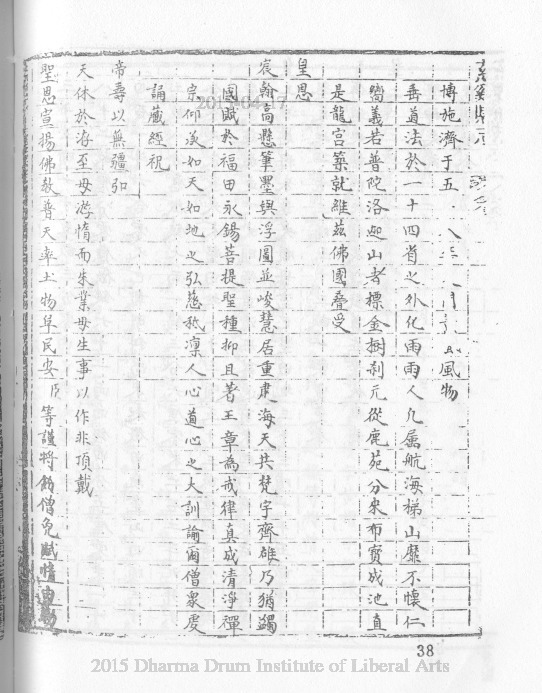 博施濟于五
垂道法於一十四省之外化雨雨人凡屬航海梯山靡不懷仁
嚮義若普陀洛迦山者標金樹剎元從鹿苑分來布寶成池直
是龍宮築就維茲佛國疊受
皇恩
宸翰高懸筆墨與浮圖並峻慧居重肅海天共梵宇齊雄乃猶蠲
國賦於福田永錫菩提聖種抑且著王章為戒律真成清淨禪
宗仰羨如天如地之弘慈秪凜人心道心之大訓諭爾僧眾虔
誦藏經祝
帝壽以無疆弘
天休於洊至毋游惰而失業毋生事以作非頂戴
聖恩宣揚佛教普天率土物阜民安臣等謹將飭僧免賦情由
38
2015 Dharma Drum Institute of Liberal Arts